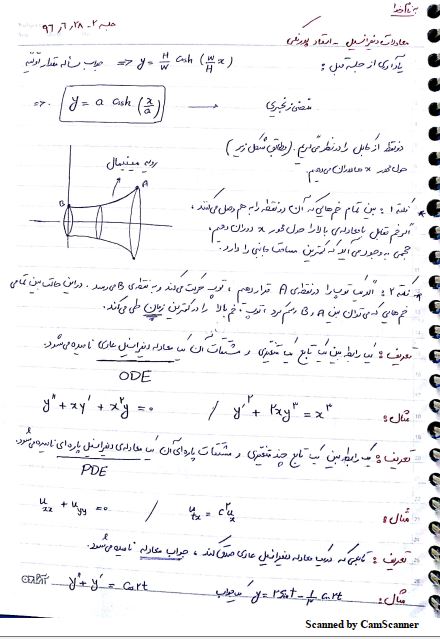 به نام خدا
جلسه ۲ - ۲۸ ر ۶ ر ۹۶
معادلات دیفرانسیل - استاد
یادآوری از جلسه قبل : y = H/W cosh (W/H x) ⇒ جواب مسأله
⇒ y = a cosh (x/a) → منحنی زنجیری
دو نقطه از کابل را در نظر می‌گیریم. (مطابق شکل زیر)
حول محور x ها دوران می‌دهیم
رویه مینیمال
A
B
نکته ۱ : بین تمام خم‌هایی که آن دو نقطه را به هم وصل می‌کنند ،
اگر خم با معادله‌ی بالا را حول محور x دوران دهیم ،
حجمی به وجود می‌آید که کمترین مساحت جانبی را دارد.
نکته ۲ : اگر یک توپ را در نقطه‌ی A قرار دهیم ، توپ حرکت می‌کند و به نقطه‌ی B می‌رسد. در این حالت بین تمامی
خم‌هایی که می‌توان بین A و B رسم کرد ، توپ ، خم بالا را در کمترین زمان طی می‌کند.
تعریف : یک رابطه بین یک تابع یک متغیری و مشتقات آن یک معادله دیفرانسیل عادی نامیده می‌شود.
ODE
مثال : y'' + xy' + x²y = ۰ / y'² + ۲xy³ = x³
تعریف : یک رابطه بین یک تابع چند متغیری و مشتقات پاره‌ای آن یک معادله‌ی دیفرانسیل پاره‌ای نامیده می‌شود.
PDE
مثال : u_xx + u_yy = ۰ / u_tx = c²u_x
تعریف : تابعی که در یک معادله دیفرانسیل عادی صدق کند ، جواب معادله نامیده می‌شود.
مثال : y'' + y' = cos t یک جواب y = ½ sin t - ½ cos t
Scanned by CamScanner